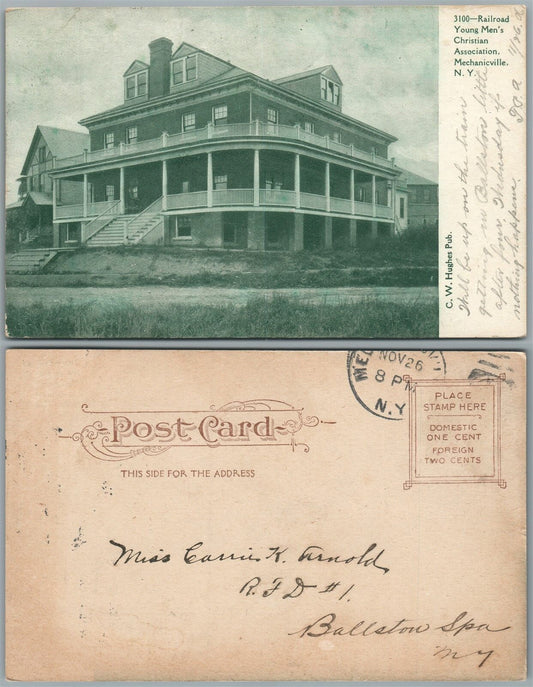 3100—Railroad
Young Men's
Christian
Association,
Mechanicville,
N. Y.
C. W. Hughes Pub.
Will be up on the train
getting in Ballston little
after four Wednesday if
nothing happens.
11/26
NOV 26
8 PM
N.Y.
PLACE
STAMP HERE
DOMESTIC
ONE CENT
FOREIGN
TWO CENTS
Post Card
THIS SIDE FOR THE ADDRESS
Miss Carrie K. Arnold
R.F.D #1.
Ballston Spa
NY